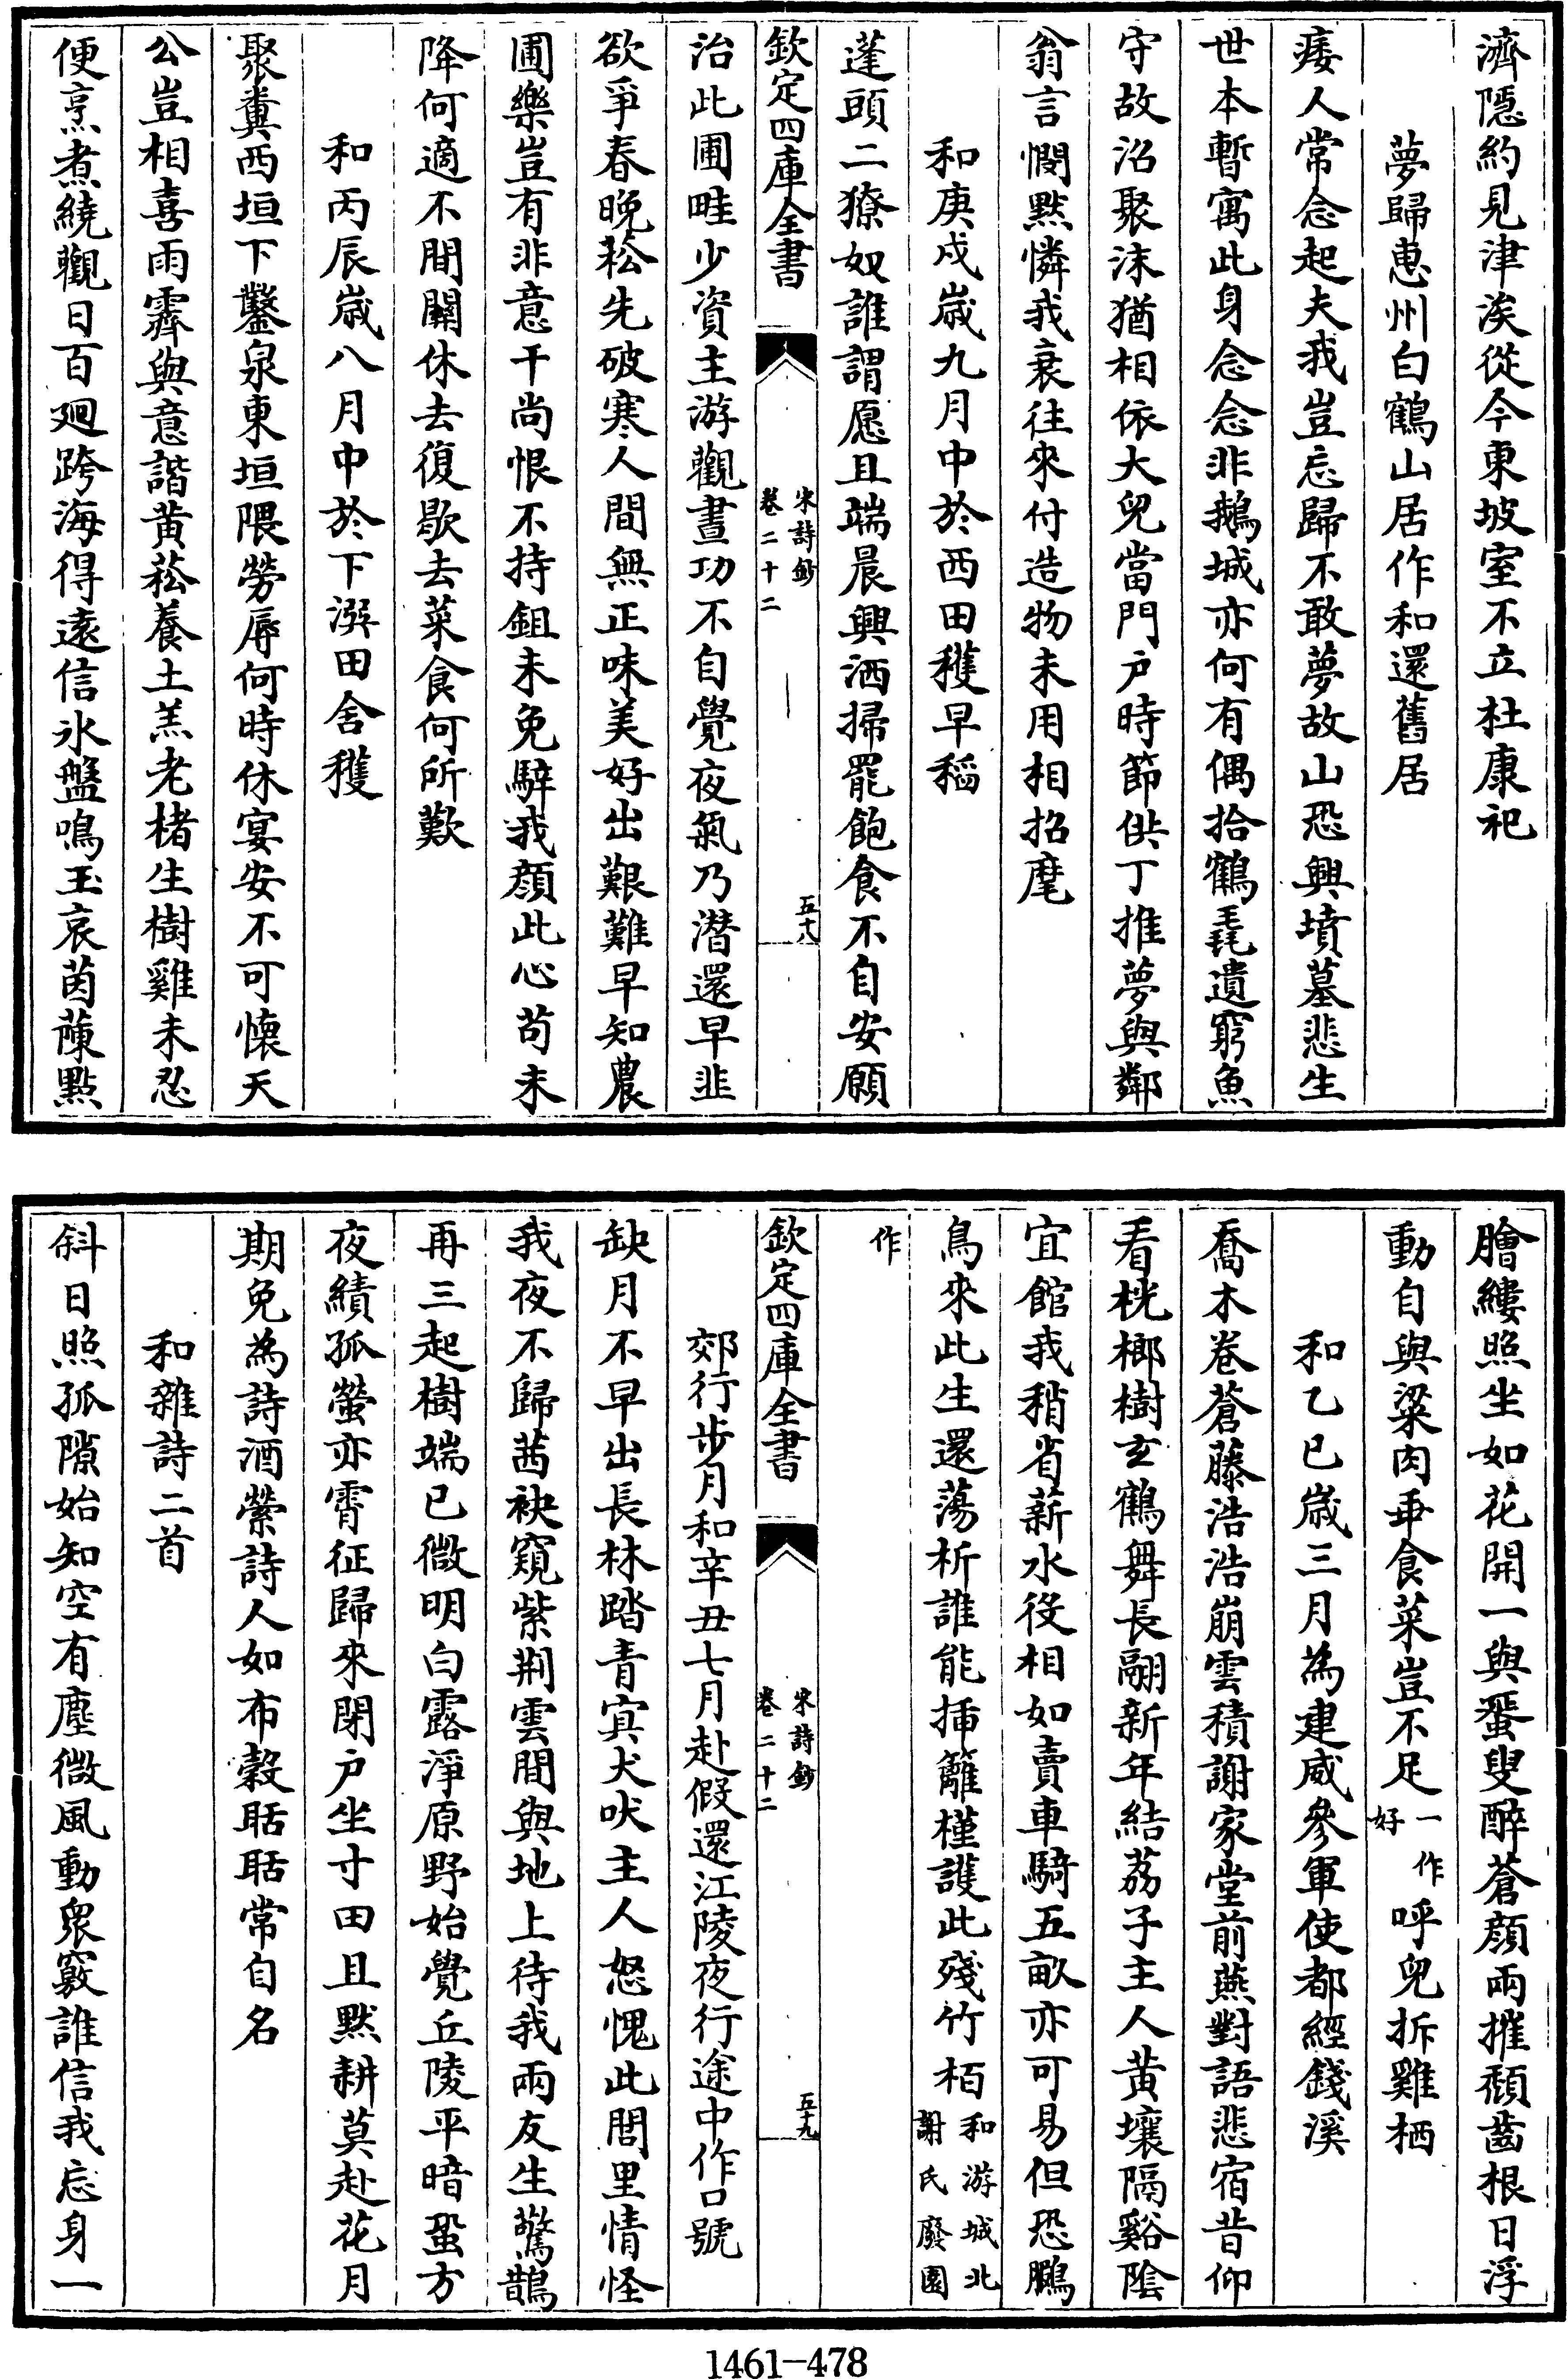 濟隱約見津涘從今東坡室不立杜康祀
夢歸惠州白鶴山居作和還舊居
痿人常念起夫我豈忘歸不敢夢故山恐興墳墓悲生
世本暫寓此身念念非鵝城亦何有偶拾鶴毳遺窮魚
守故沼聚沫猶相依大兒當門户時節供丁推夢與鄰
翁言憫黙憐我衰往來付造物未用相招麾
和庚戍嵗九月中於西田穫早稻
蓬頭二獠奴誰謂愿且端晨興洒掃罷飽食不自安願
欽定四庫全書
宋詩鈔
卷二十二
五十八
治此圃畦少資主游觀晝功不自覺夜氣乃潛還早韭
欲爭春晚菘先破寒人間無正味美好出艱難早知農
圃樂豈有非意干尚恨不持鉏未免騂我顔此心苟未
降何適不間關休去復歇去菜食何所歎
和丙辰嵗八月中於下潠田舍穫
聚糞西垣下鑿泉東垣隈勞辱何時休宴安不可懷天
公豈相喜雨霽與意諧黄菘養土羔老楮生樹雞未忍
便烹煮繞觀日百廻跨海得遠信氷盤鳴玉哀茵蔯點
膾縷照坐如花開一與蜑叟醉蒼顔兩摧頽齒根日浮
動自與粱肉乖食菜豈不足一作好呼兒拆雞栖
和乙巳嵗三月為建威參軍使都經錢溪
喬木卷蒼藤浩浩崩雲積謝家堂前燕對語悲宿昔仰
看桄榔樹玄鶴舞長翮新年結荔子主人黄壤隔谿陰
宜館我稍省薪水役相如賣車騎五畝亦可易但恐鵩
鳥來此生還蕩析誰能揷籬槿護此殘竹栢和游城北謝氏廢園
作
欽定四庫全書
宋詩鈔
卷二十二
五十九
郊行步月和辛丑七月赴假還江陵夜行途中作口號
缺月不早出長林踏青㝠犬吠主人怒愧此閭里情怪
我夜不歸茜袂窺紫荆雲間與地上待我兩友生驚鵲
再三起樹端已微明白露淨原野始覺丘陵平暗蛩方
夜績孤螢亦宵征歸來閉户坐寸田且黙耕莫赴花月
期免為詩酒縈詩人如布穀聒聒常自名
和雜詩二首
斜日照孤隙始知空有塵微風動衆竅誰信我忘身一
1461-478